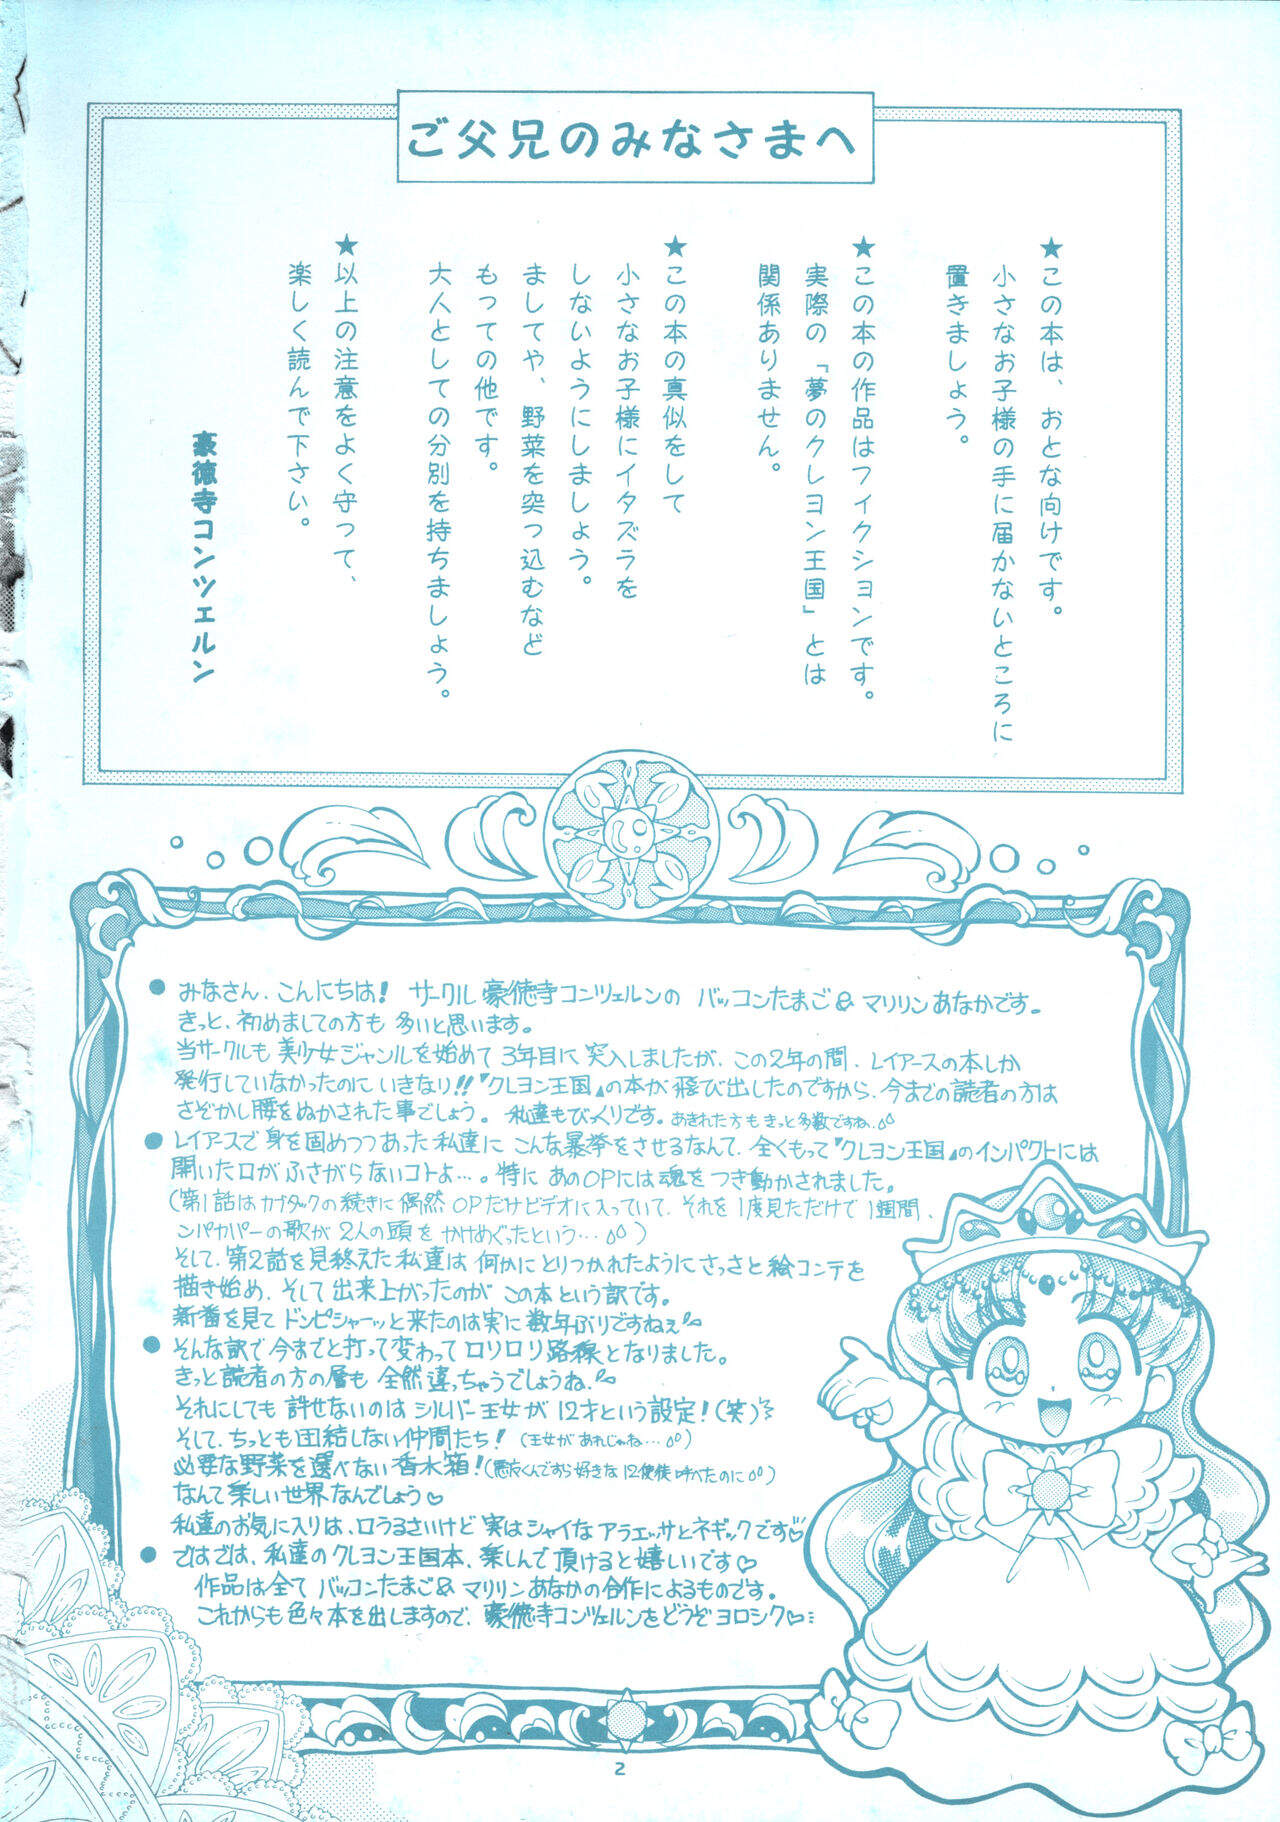 ご父兄のみなさまへ
★この本は、おとな向けです。
小さなお子様の手に届かないところに
置きましょう。
★この本の作品はフィクションです。
実際の「夢のクレヨン王国」とは
関係ありません。
★この本の真似をして
小さなお子様にイタズラを
しないようにしましょう。
ましてや、野菜を突っ込むなど
もっての他です。
大人としての分別を持ちましょう。
★以上の注意をよく守って、
楽しく読んで下さい。
豪徳寺コンツェルン
●みなさん、こんにちは! サークル豪徳寺コンツェルンの バッコンたまご& マリリンあなかです。
きっと、初めましての方も多いと思います。
当サークルも美少女ジャンルを始めて3年目に突入しましたが、この2年の間、レイアースの本しか
発行していなかったのにいきなり!!『クレヨン王国』の本が飛び出したのですから、今までの読者の方は
さぞかし腰をぬかされた事でしょう。私達もびっくりです。あきれた方もきっと多数ですね。
●レイアースで身を固めつつあった私達にこんな暴挙をさせるなんて、全くもって『クレヨン王国』のインパクトには
開いた口がふさがらないコトよ…。特にあのOPには魂をつき動かされました。
(第1話はカブタックの続きに偶然OPだけビデオに入っていて、それを1度見ただけで1週間、
ンパカパーの歌が2人の頭をかけめぐったという…)
そして、第2話を見終えた私達は何かにとりつかれたようにさっさと絵コンテを
描き始め、そして出来上がったのがこの本という訳です。
新番を見てドンピシャーッと来たのは実に数年ぶりですねぇ
●そんな訳で今までと打って変わってロリロリ路線となりました。
きっと読者の方の層も全然違っちゃうでしょうね。
それにしても許せないのはシルバー王女が12才という設定!(笑)
そして、ちっとも団結しない仲間たち!(王女があれじゃね…)
必要な野菜を選べない香水箱!(悪友くんですら好きな12使徒呼べたのに)
なんて楽しい世界なんでしょう♡
私達のお気に入りは、口うるさいけど実はシャイなアラエッサとネギックです♡
●ではでは、私達のクレヨン王国本、楽しんで頂けると嬉しいです♡
作品は全てバッコンたまご& マリリンあなかの合作によるものです。
これからも色々本を出しますので、豪徳寺コンツェルンをどうぞヨロシク♡
2